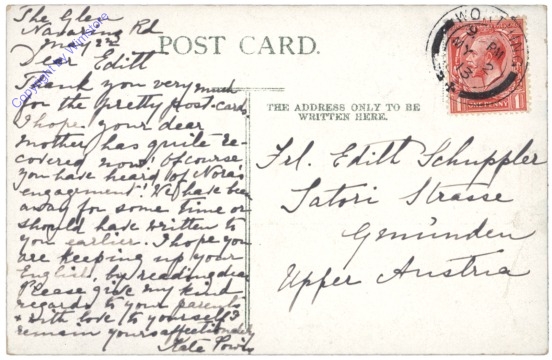 The Glen
Navarino Rd
May 2nd
Dear Edith
Thank you very much
for the pretty post-card.
I hope your dear
mother has quite re-
covered now! Of course
you have heard of Nora's
engagement! We have been
away for some time or
should have written to
you earlier. I hope you
are keeping up your
English, by reading
Please give my kind
regards to your parents
& with love to yourself I
remain yours affectionately
Kate
POST CARD.
THE ADDRESS ONLY TO BE
WRITTEN HERE.
Frl. Edith Schuppler
Satori Strasse
Gmünden
Upper Austria
WORTHING
PM
MY 2
1
Copyright by